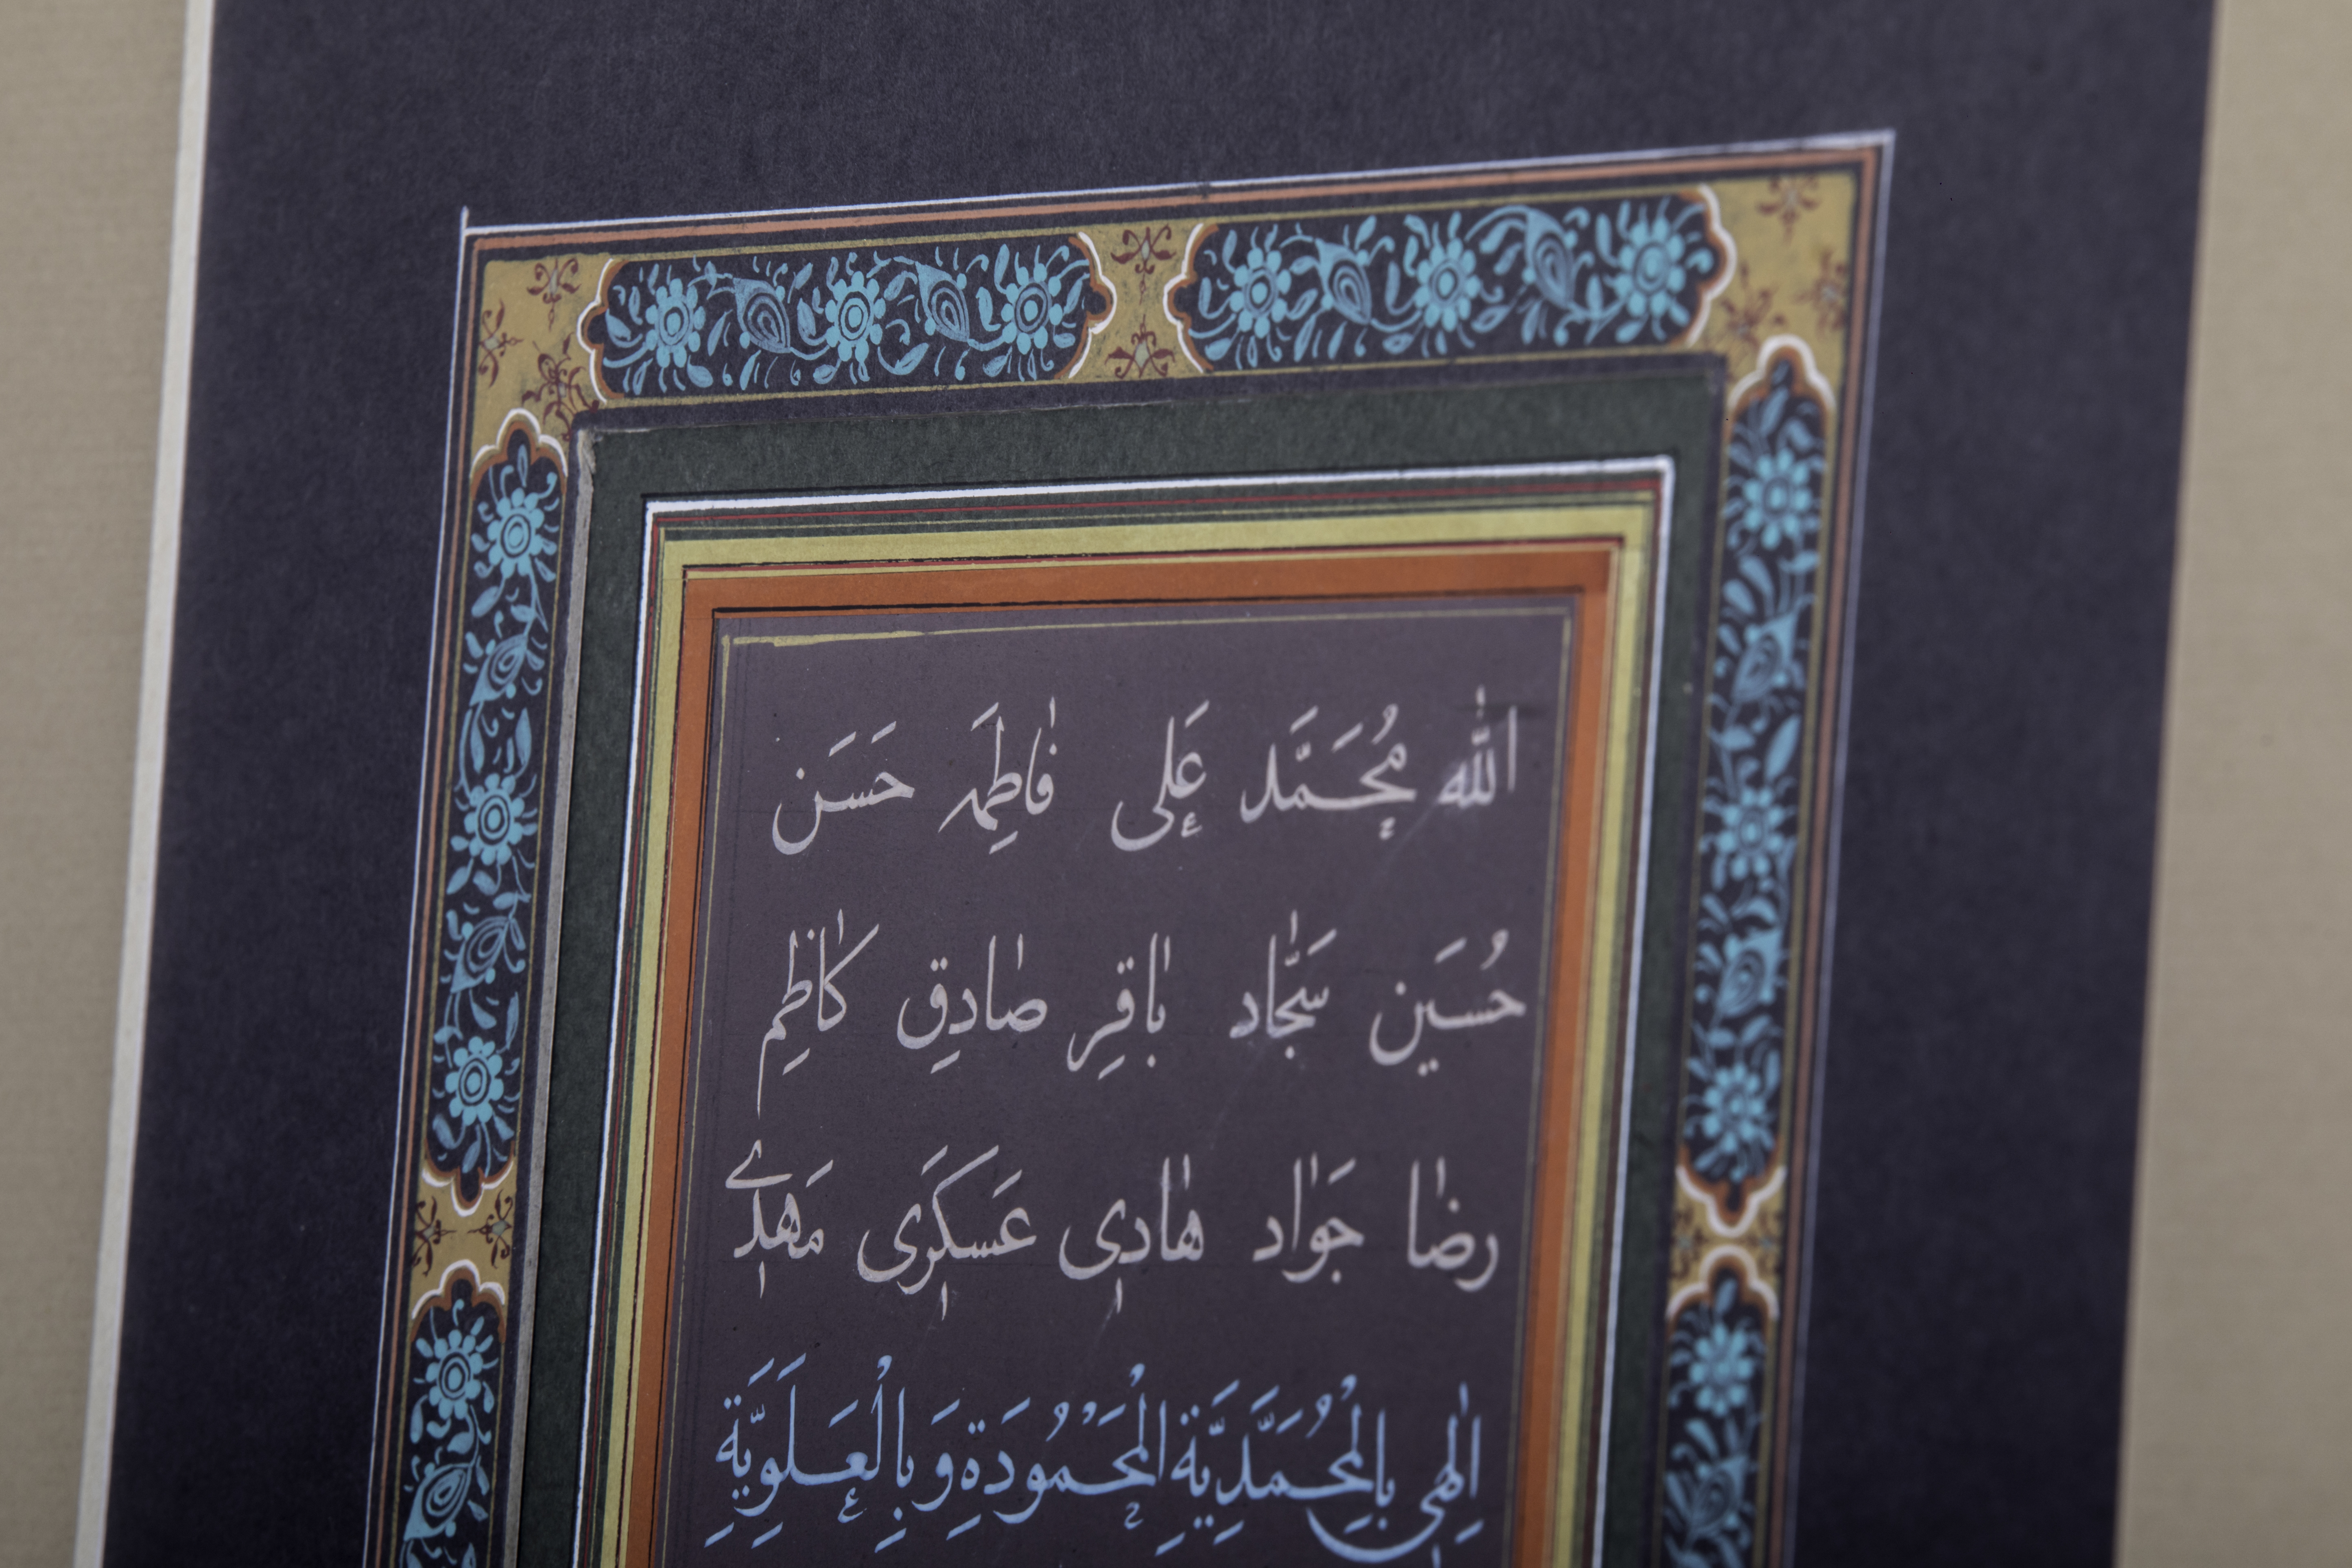 اللّٰه مُحَمَّد عَلى فٰاطِمَه حَسَن
حُسَين سَجّٰاد بٰاقِر صٰادِق كٰاظِم
رضٰا جَوٰاد هٰادِى عَسكَرِى مَهدِے
اِلٰهِى بِالْمُحَمَّدِيَّةِ الْمَحْمُودَةِ وَ بِالْعَلَوِيَّةِ